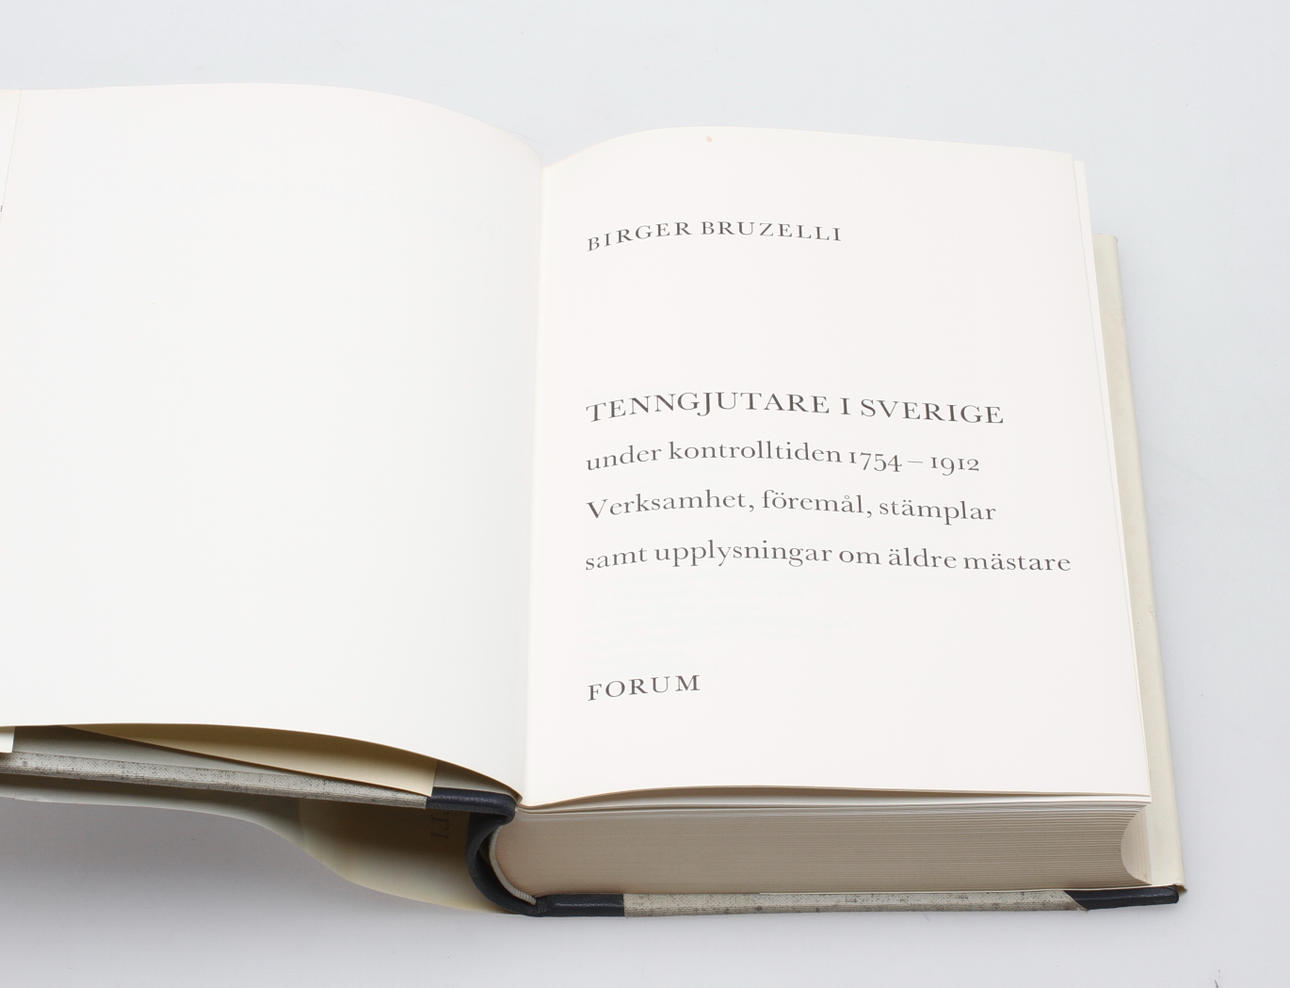 BIRGER BRUZELLI
TENNGJUTARE I SVERIGE
under kontrolltiden 1754 – 1912
Verksamhet, föremål, stämplar
samt upplysningar om äldre mästare
FORUM